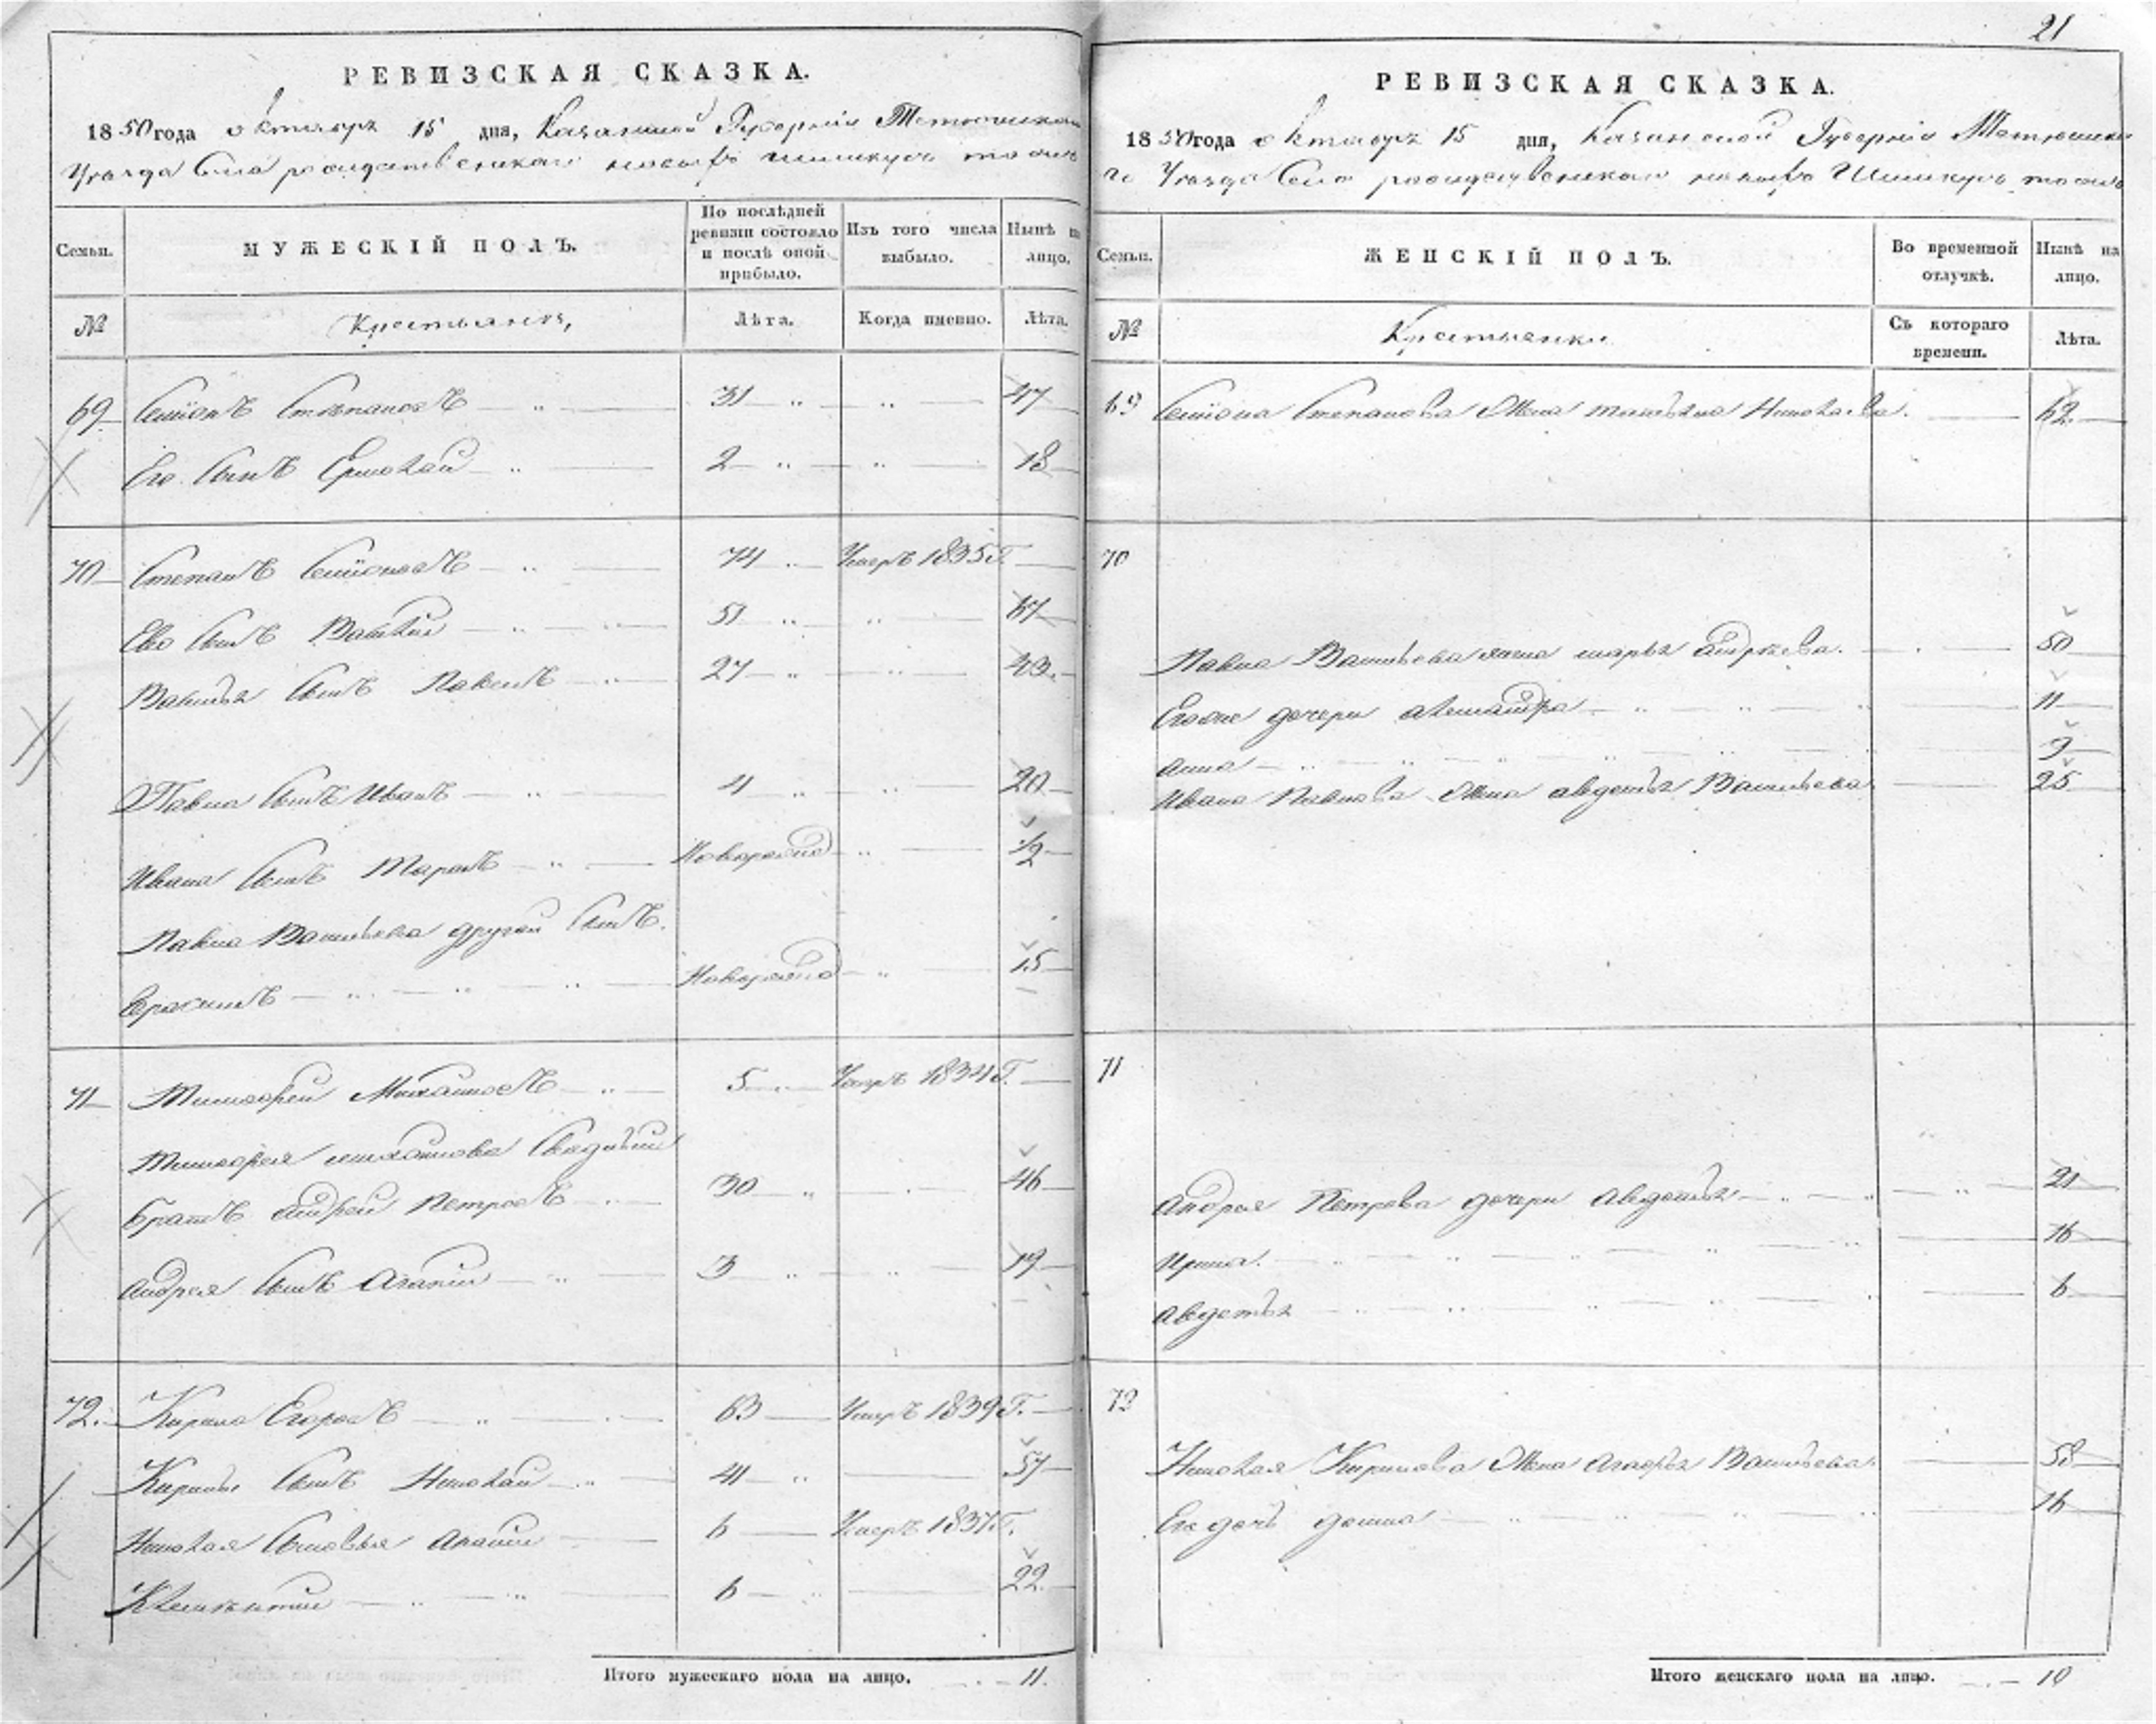 РЕВИЗСКАЯ СКАЗКА.
1850 года октября 15 дня, Казанской Губернiи Тетюшскаго
Уезда Села рождественскаго
Семьи.
МУЖЕСКIЙ ПОЛЪ.
По послѣдней ревизiи состояло и послѣ оной прибыло.
Изъ того числа выбыло.
Нынѣ на лицо.
№
Крестьянъ,
Лѣта.
Когда именно.
Лѣта.
69 Семiонъ Степановъ 31 47
Его Сынъ Ермолай 2 18
70 Степанъ Семiоновъ 74 Умеръ 1835 Г.
Ево Сынъ Василiй 51 67
Василья Сынъ Павелъ 27 43
Павла Сынъ Иванъ 4 20
Ивана Сынъ Тарасъ Новорожд 1/2
Павла Васильева другой Сынъ.
Новорожд 15
71 Тимофей Михайловъ 5 Умеръ 1834 Г.
Тимофея михайлова
Братъ андрей Петровъ 30 46
андрея Сынъ 3 19
72. Кирила Егоровъ 63 Умеръ 1839 Г.
Кирилы Сынъ Николай 41 57
Николая Сыновья 6 Умеръ 1837 Г.
6 22
Итого мужескаго пола на лицо. 11.
21
РЕВИЗСКАЯ СКАЗКА.
1850 года октября 15 дня, Казанской Губернiи Тетюшскаго
Уезда Села рождественскаго
Семьи.
ЖЕНСКIЙ ПОЛЪ.
Во временной отлучкѣ.
Нынѣ на лицо.
№
Крестьянки
Съ котораго времени.
Лѣта.
69 Семiона Степанова Жена Николаева. 62
70
Павла Васильева жена марья андреева. 50
Еваже дочери 11
анна 9
Ивана Павлова Жена авдотья Васильева 25
71
андрея Петрова дочери авдотья 21
Ирина. 16
авдотья 6
72
Николая Кирилова Жена агафья Васильева. 58
Его дочь 16
Итого женскаго пола на лицо. 10